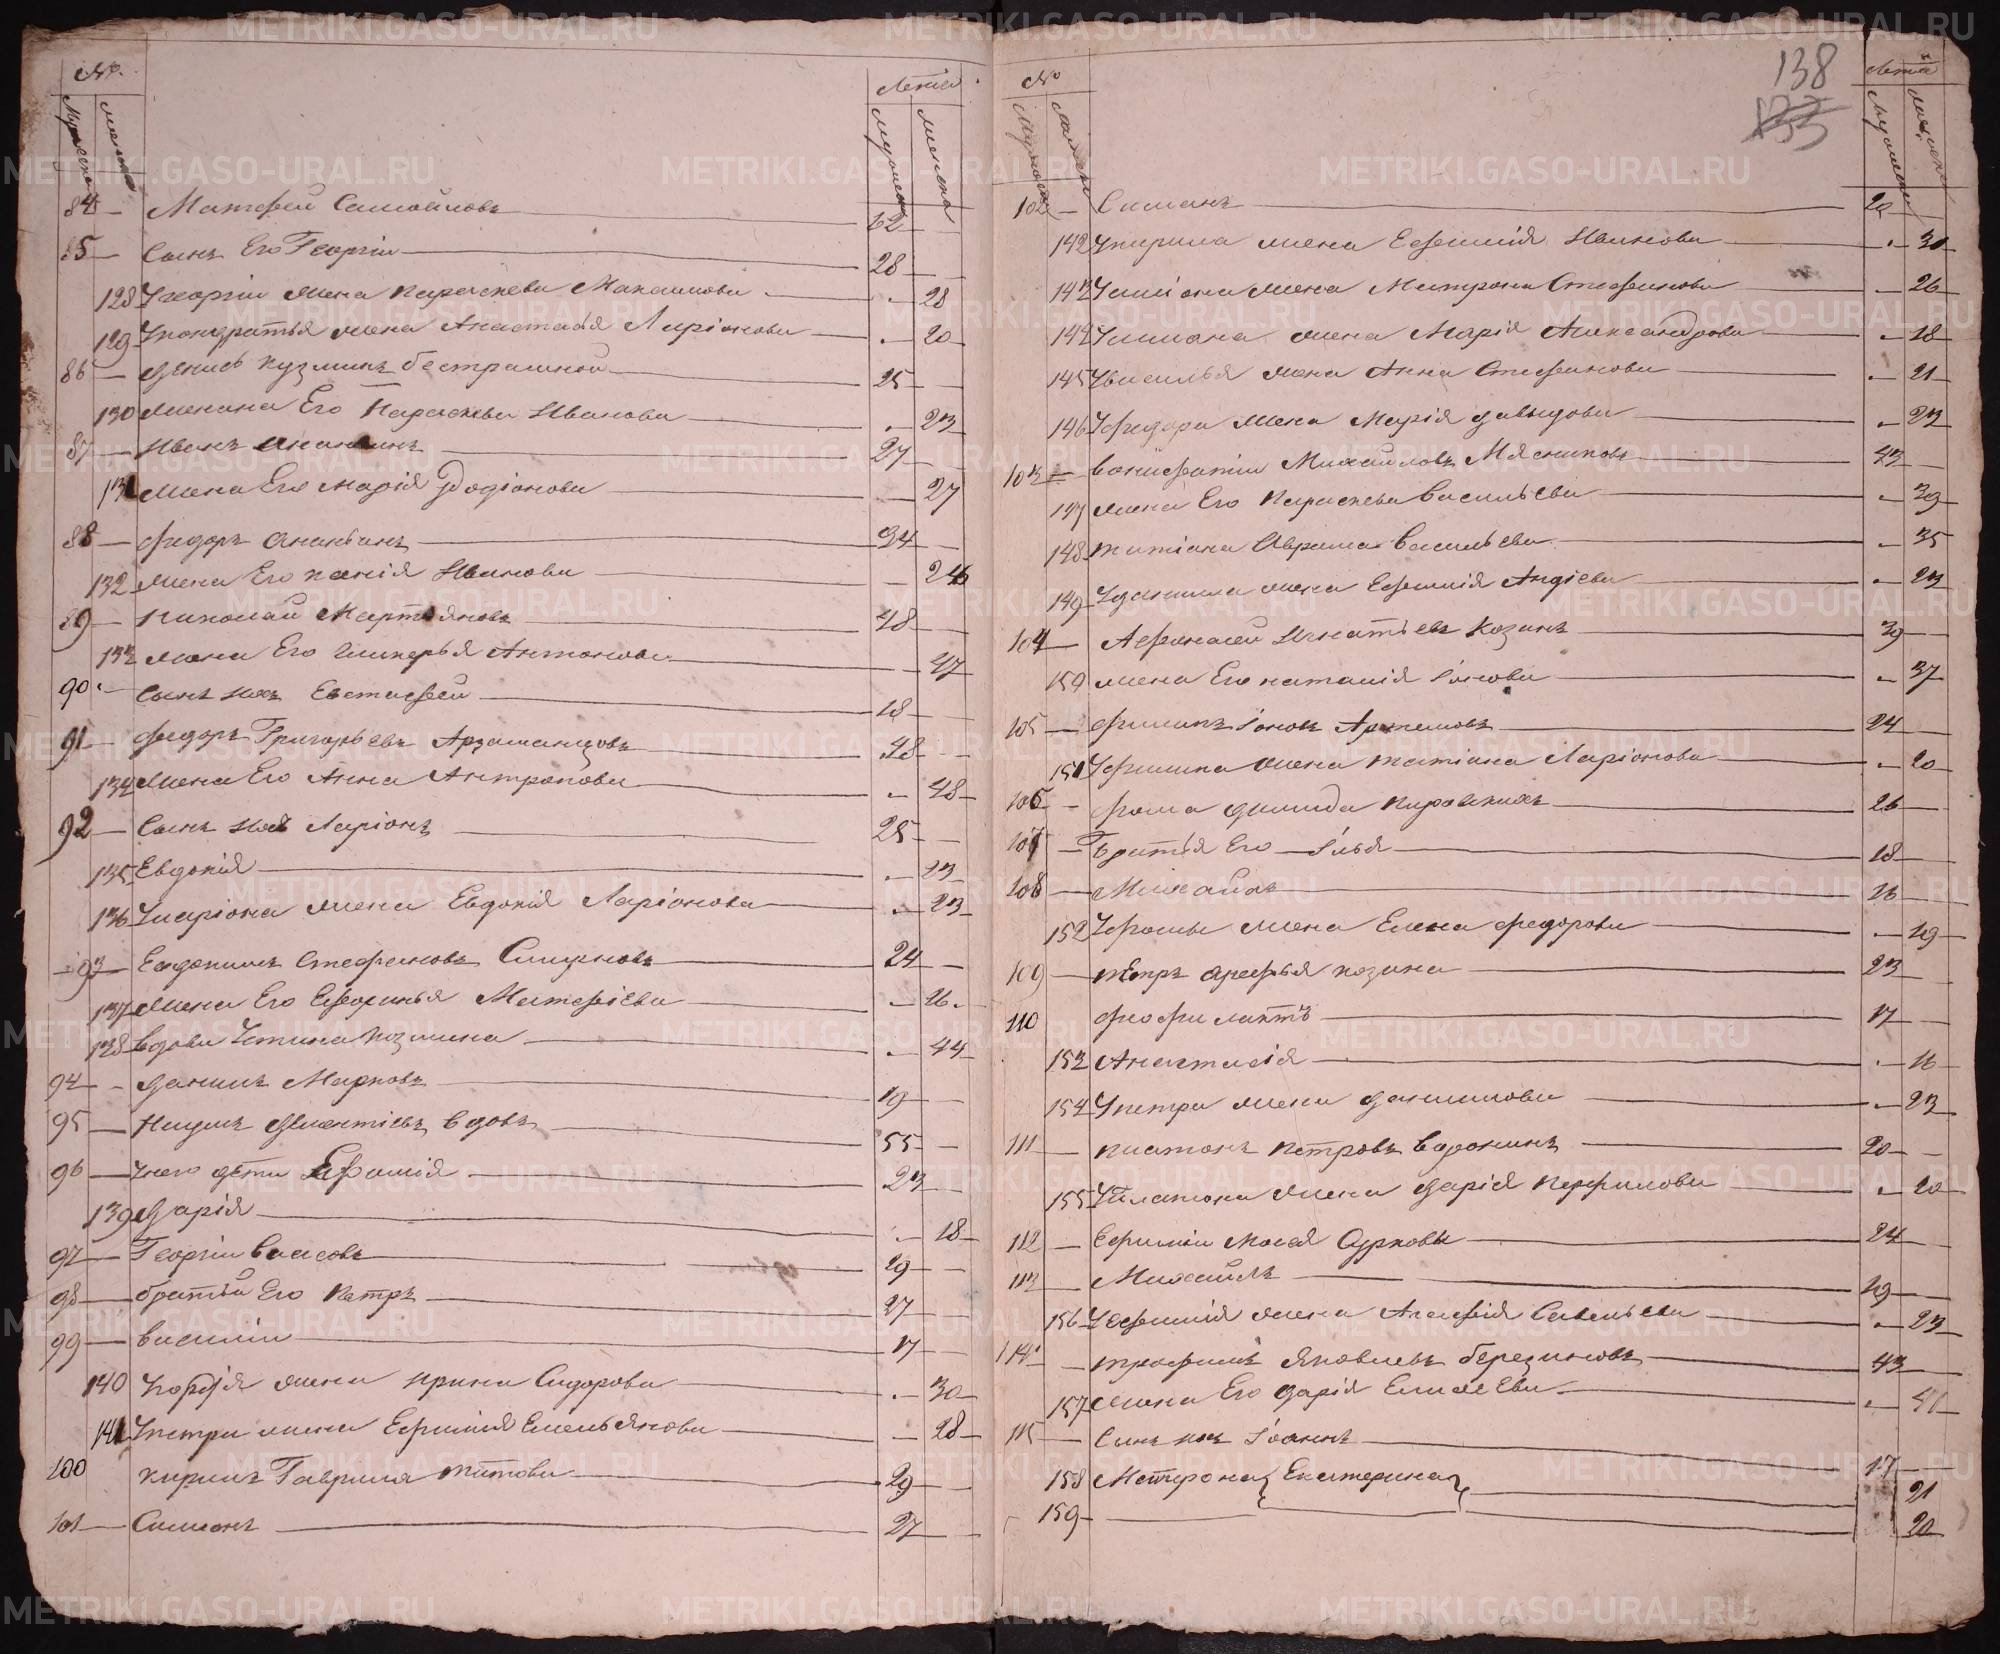 №
Лета
мужеска
женска
84 — Матфей Самойловъ — 62 —
85 — Сынъ Его Георгій — 28 —
128 Угеоргіи жена Параскева Максимова — 28
129 Укондратья жена Анастасія Ларіонова — 20
86 — Денисъ Кузминъ бестрашной — 25 —
130 Жена Его Параскева Иванова — 23
87 — Иванъ Ананьинъ — 27 —
131 Жена Его Марія Родіонова — 27
88 — Федоръ Ананьинъ — 24 —
132 Жена Его Ксенія Иванова — 26
89 — Николай Мартьяновъ — 48 —
133 Жена Его Гликерья Антонова — 47
90 — Сынъ ихъ Евстафей — 18 —
91 — Федоръ Григорьевъ Арзамасцовъ — 48 —
134 Жена Его Анна Антропова — 48
92 — Сынъ ихъ Ларіонъ — 25 —
135 Евдокія — 23
136 Уларіона жена Евдокія Ларіонова — 23
93 — Евдокимъ Стефановъ Смирновъ — 24 —
137 Жена Его Ефросинья Матфіева — 26
138 вдова Устина Козмина — 44
94 — Данилъ Марковъ — 19 —
95 — Наумъ Дементіевъ вдовъ — 55 —
96 — Унего дети Ефимія — 23
139 Дарія — 18
97 — Георгіи Власовъ — 29 —
98 — братьи Его Петръ — 27 —
99 — василіи — 17 —
140 Угоргія жена Ирина Сидорова — 30
141 Упетра жена Ефимія Емельянова — 28
100 Кирилъ Гаврила Титовы — 29 —
101 — Симионъ — 27 —
138
133
№
Лета
мужеска
женска
102 — Симанъ — 20 —
142 Укирила жена Ефимія Иванова — 30
143 Усиміона жена Матрона Стефанова — 26
142 Усимона жена Марія Александрова — 18
145 Увасилья жена Анна Стефанова — 21
146 Уфедора жена Марія Давыдова — 23
103 — Вонифатіи Михайловъ Мясниковъ — 43 —
147 жена Его Параскева Васильева — 39
148 Татіана Аврама Васильева — 35
149 Уданила жена Ефимія Андіева — 23
104 — Афонасей Игнатіевъ Козинъ — 39 —
150 жена Его наталія Іонова — 37
105 — Филипъ Іоновъ Артемовъ — 24 —
151 Уфилипа жена татіана Ларіонова — 20
106 — Фома Димида Кировскихъ — 26 —
107 — братья Его — Илья — 18 —
108 — Михайлъ — 16 —
152 Уфомы жена Елена Федорова — 19
109 — Петръ Арефья Козина — 23 —
110 Феофилактъ — 17 —
153 Анастасія — 16
154 Упетра жена Данилова — 23
111 — Платонъ Петровъ Воронинъ — 20 —
155 Уплатона жена Дарія Перфилова — 20
112 — Ефиміи Мосея Сурковы — 24 —
113 — Михайлъ — 19 —
156 Уефимія жена Агафія Савельева — 23
114 — Трофимъ Яковлевъ березиковъ — 43 —
157 Жена Его Дарія Елисеева — 41
115 — Сынъ ихъ Іоаннъ — 17 —
158 Матрона Екатерина — 21
159 — 20